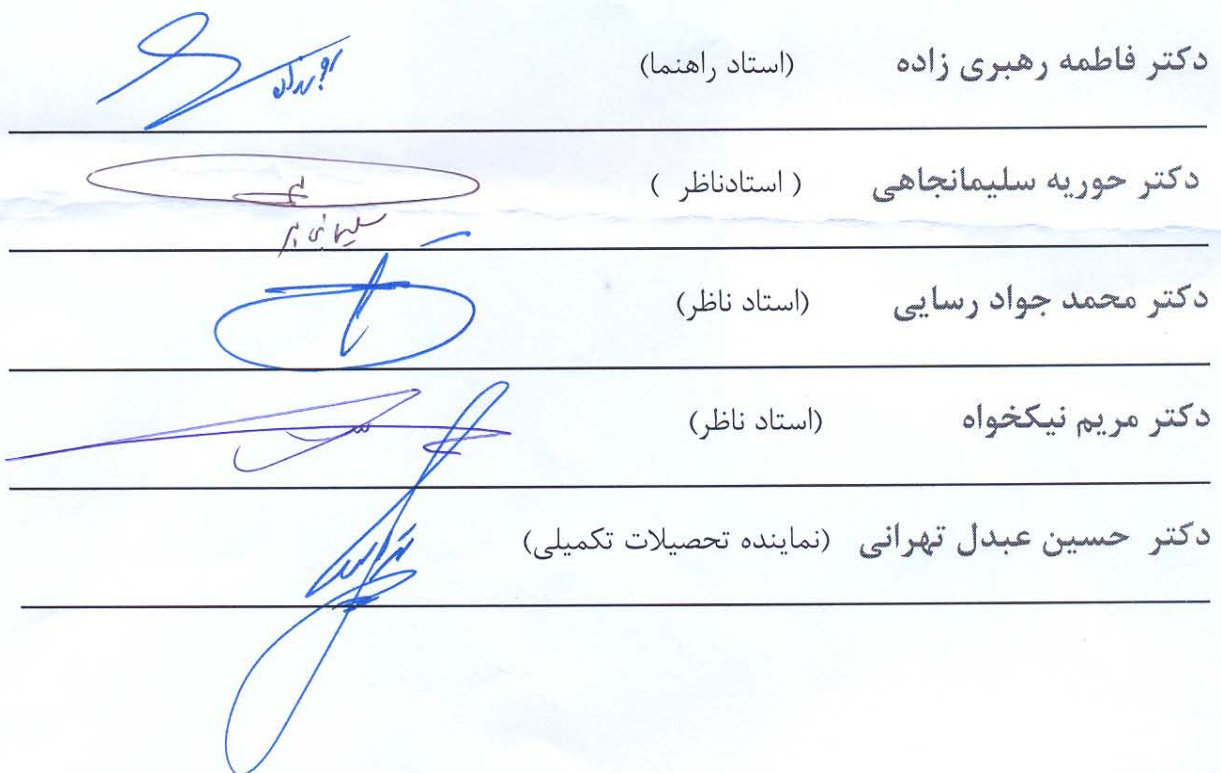 دکتر فاطمه رهبری زاده (استاد راهنما)
دکتر حوریه سلیمانجاهی ( استادناظر )
دکتر محمد جواد رسایی (استاد ناظر)
دکتر مریم نیکخواه (استاد ناظر)
دکتر حسین عبدل تهرانی (نماینده تحصیلات تکمیلی)